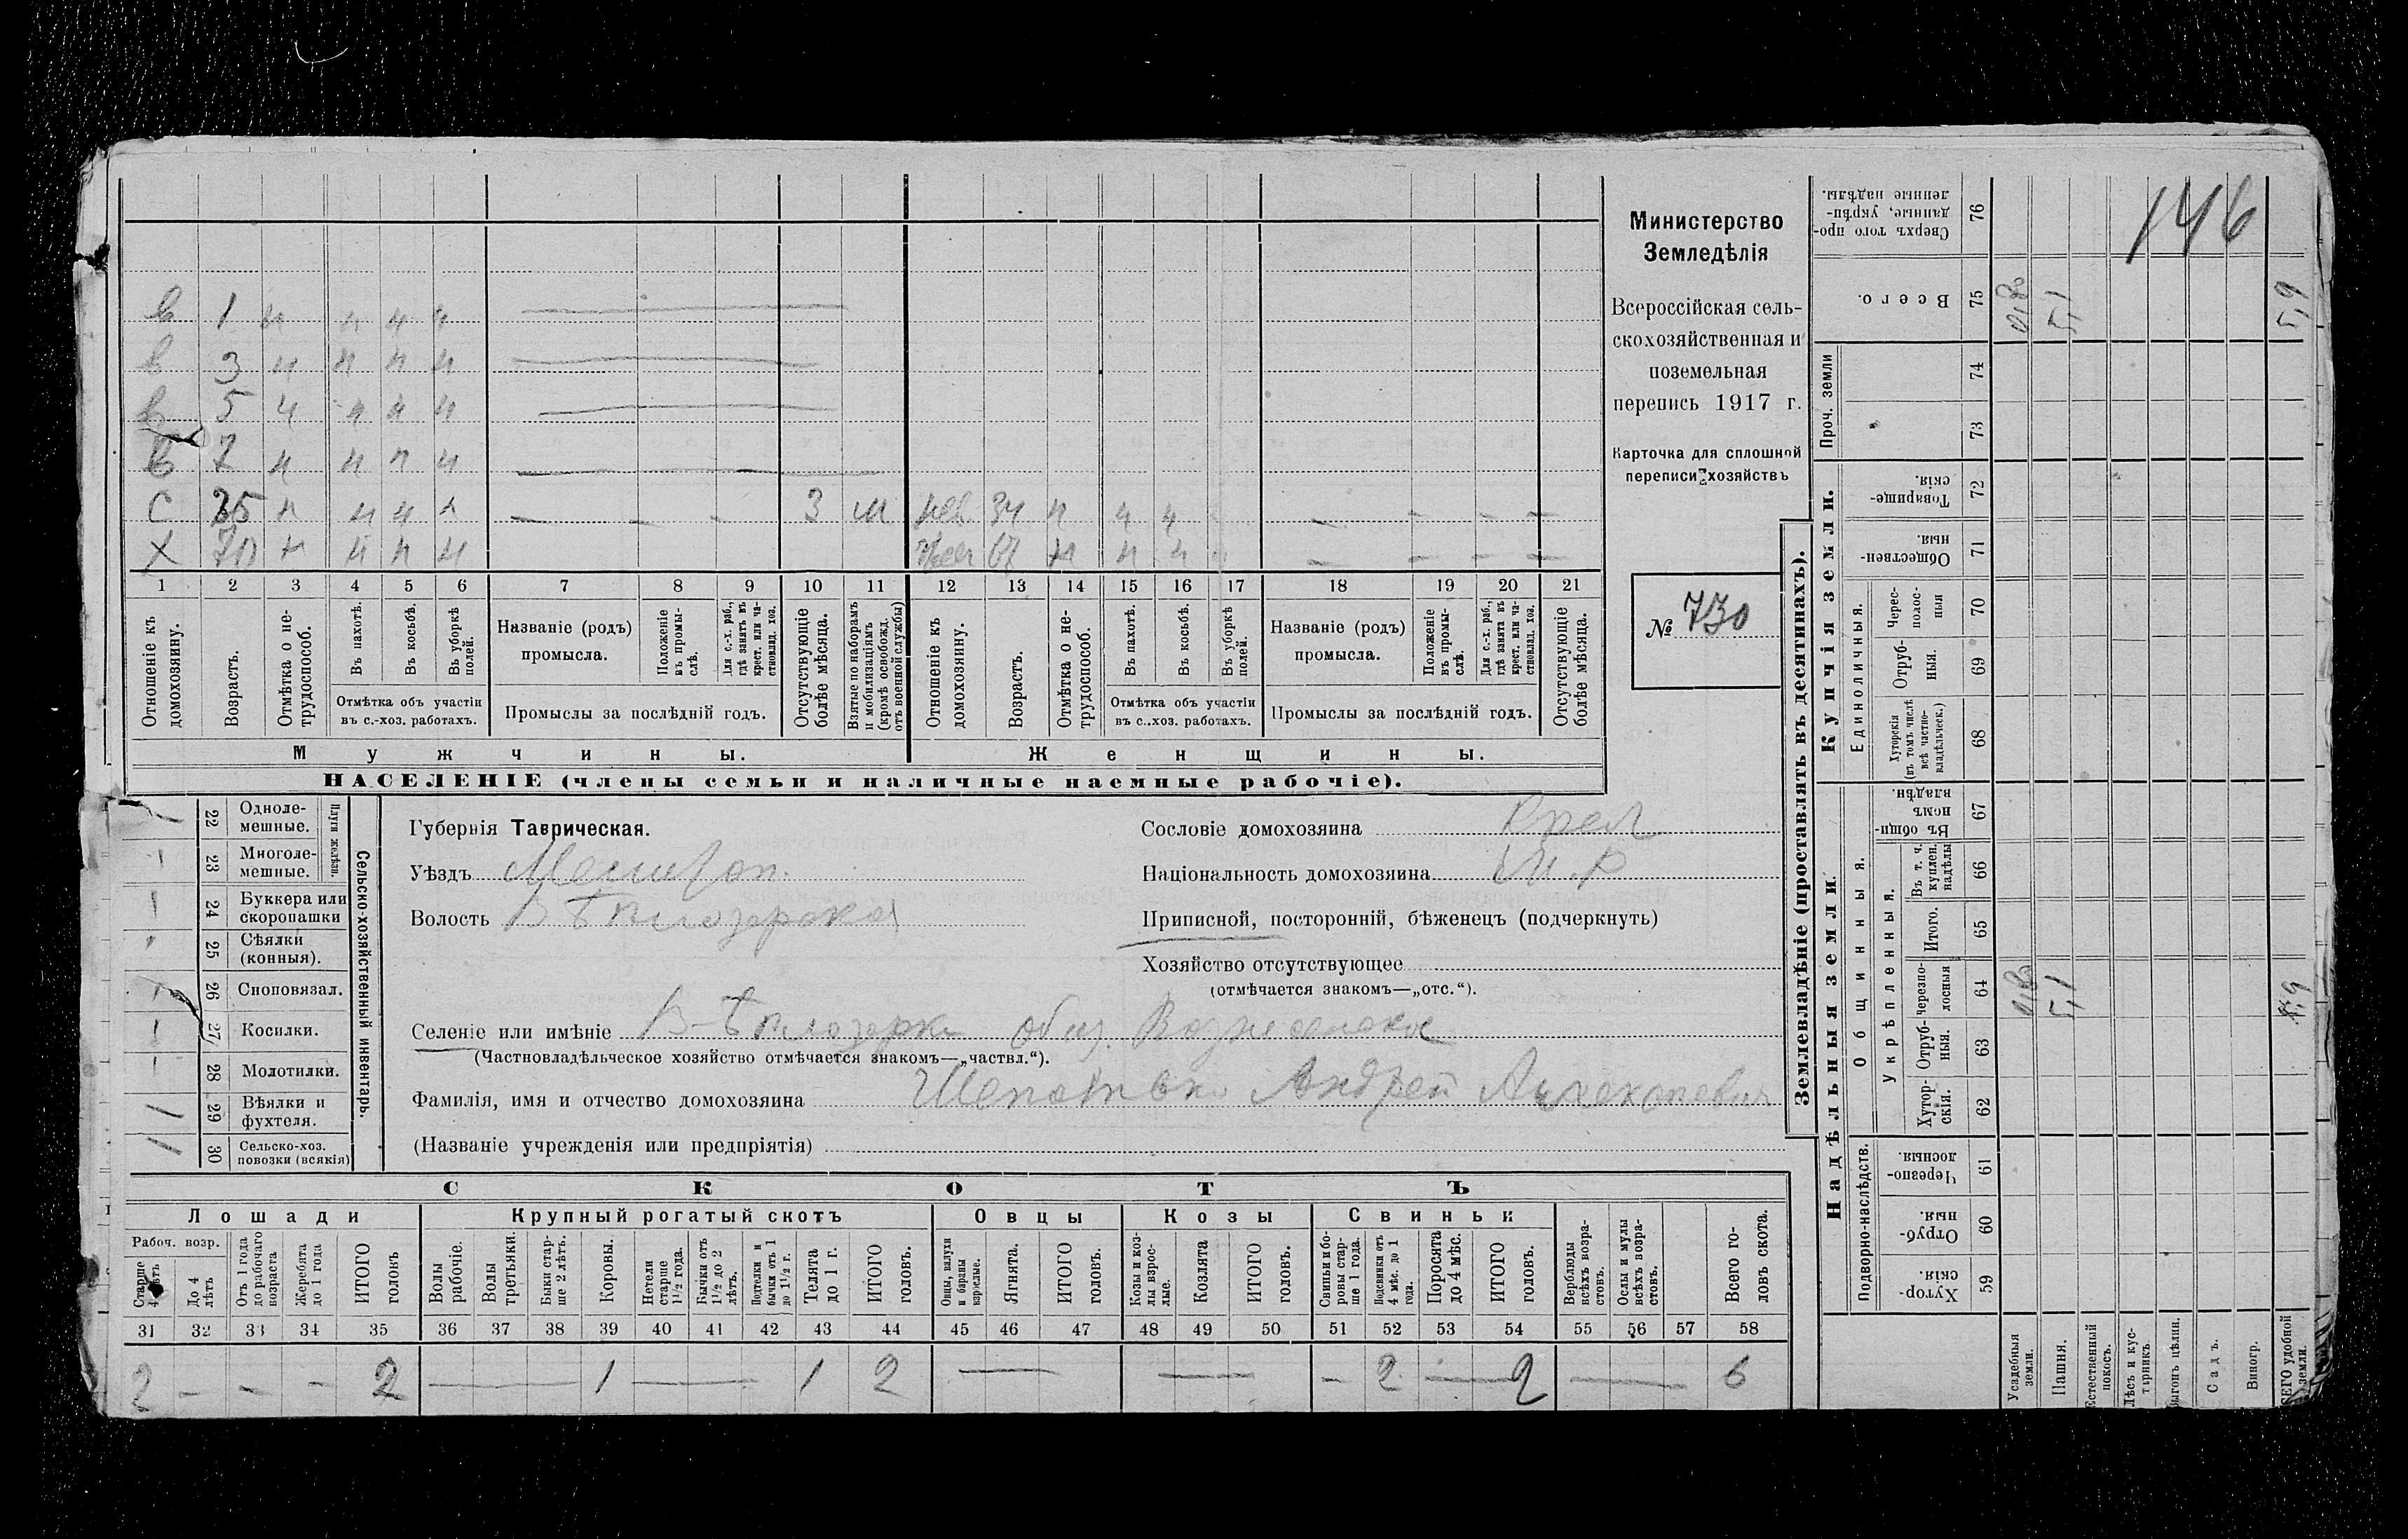 146
Министерство
Земледѣлія
Всероссійская сель-
скохозяйственная и
поземельная
перепись 1917 г.
Карточка для сплошной
переписи хозяйствъ
№ 730
в 1 н н н н
в 3 н н н н
в 5 н н н н
в 7 н н н н
С 35 н н н н — — — 3 м нев 34 н н н — — — —
Х 70 н н н н жен 67 н н н — — — —
1 2 3 4 5 6 7 8 9 10 11 12 13 14 15 16 17 18 19 20 21
Отношеніе къ домохозяину.
Возрастъ.
Отмѣтка о не-трудоспособ.
Въ пахотѣ.
Въ косьбѣ.
Въ уборкѣ полей.
Отмѣтка объ участіи
въ с.-хоз. работахъ.
Названіе (родъ)
промысла.
Положеніе въ промы-слѣ.
Для с.-х. раб., гдѣ занятъ въ крест. или ча-стновлад. хоз.
Промыслы за послѣдній годъ.
Отсутствующіе болѣе мѣсяца.
Взятые по наборамъ и мобилизаціямъ (кромѣ освобожд. отъ военной службы)
Отношеніе къ домохозяину.
Возрастъ.
Отмѣтка о не-трудоспособ.
Въ пахотѣ.
Въ косьбѣ.
Въ уборкѣ полей.
Отмѣтка объ участіи
въ с.-хоз. работахъ.
Названіе (родъ)
промысла.
Положеніе въ промы-слѣ.
Для с.-х. раб., гдѣ занята въ крест. или ча-стновлад. хоз.
Промыслы за послѣдній годъ.
Отсутствующіе болѣе мѣсяца.
Мужчины. Женщины.
НАСЕЛЕНІЕ (члены семьи и наличные наемные рабочіе).
22 Одноле-мешные.
23 Многоле-мешные.
Плуги желѣзн.
24 Буккера или скоропашки
25 Сѣялки (конныя).
26 Сноповязал.
27 Косилки.
28 Молотилки.
29 Вѣялки и фухтеля.
30 Сельско-хоз. повозки (всякія)
Сельско-хозяйственный инвентарь.
Губернія Таврическая.
Уѣздъ Мелитоп.
Волость В Бѣлозерская
Сословіе домохозяина Крест
Національность домохозяина М.Р
Приписной, посторонній, бѣженецъ (подчеркнуть)
Хозяйство отсутствующее
(отмѣчается знакомъ—„отс.“).
Селеніе или имѣніе В-Бѣлозерка общ. Вознесенское
(Частновладѣльческое хозяйство отмѣчается знакомъ—„частвл.“).
Фамилія, имя и отчество домохозяина Шепотько Андрей
(Названіе учрежденія или предпріятія)
СКОТЪ
Лошади Крупный рогатый скотъ Овцы Козы Свиньи
Рабоч. возр.
Старше 4 лѣтъ
До 4 лѣтъ
Отъ 1 года до рабочаго возраста
Жеребята до 1 года
ИТОГО головъ
Волы рабочіе.
Волы третьяки.
Быки стар-ше 2 лѣтъ.
Коровы.
Нетели старше 1½ года.
Бычки отъ 1½ до 2 лѣтъ.
Подтелки и бычки отъ 1 до 1½ г.
Телята до 1 г.
ИТОГО головъ.
Овцы, валухи и бараны взрослые.
Ягнята.
ИТОГО головъ.
Козы и коз-лы взрос-лые.
Козлята
ИТОГО головъ.
Свиньи и бо-ровы стар-ше 1 года.
Подсвинки отъ 4 мѣс. до 1 года.
Поросята до 4 мѣс.
ИТОГО головъ.
Верблюды всѣхъ возра-стовъ.
Ослы и мулы всѣхъ возра-стовъ.
Всего го-ловъ скота.
31 32 33 34 35 36 37 38 39 40 41 42 43 44 45 46 47 48 49 50 51 52 53 54 55 56 57 58
2 — — — 2 — 1 — 1 2 — — — 2 — 2 — 6
Землевладѣніе (проставлять въ десятинахъ).
Надѣльныя земли.
Купчія земли.
Проч. земли
Подворно-наслѣдств.
Общинныя.
Укрѣпленныя.
Единоличныя.
59 Хутор-скія.
60 Отруб-ныя.
61 Черезпо-лосныя.
62 Хутор-скія.
63 Отруб-ныя.
64 Черезпо-лосныя
65 Итого.
66 Въ т. ч. куплен. надѣлы
67 Въ общин-номъ владѣн.
68 Хуторскія (въ томъ числѣ всѣ частно-владѣльческ.)
69 Отруб-ныя.
70 Черес-полос-ныя
71 Обществен-ныя.
72 Товарище-скія.
73
74
75 Всего.
76 Сверхъ того про-данные, укрѣп-ленные надѣлы.
Усадебныя земли.
Пашня. 5,1 5,1
Естественный покосъ.
Лѣсъ и кус-тарникъ.
Выгонъ цѣлин.
Садъ.
Виногр.
ВСЕГО удобной земли. 5,9 5,9